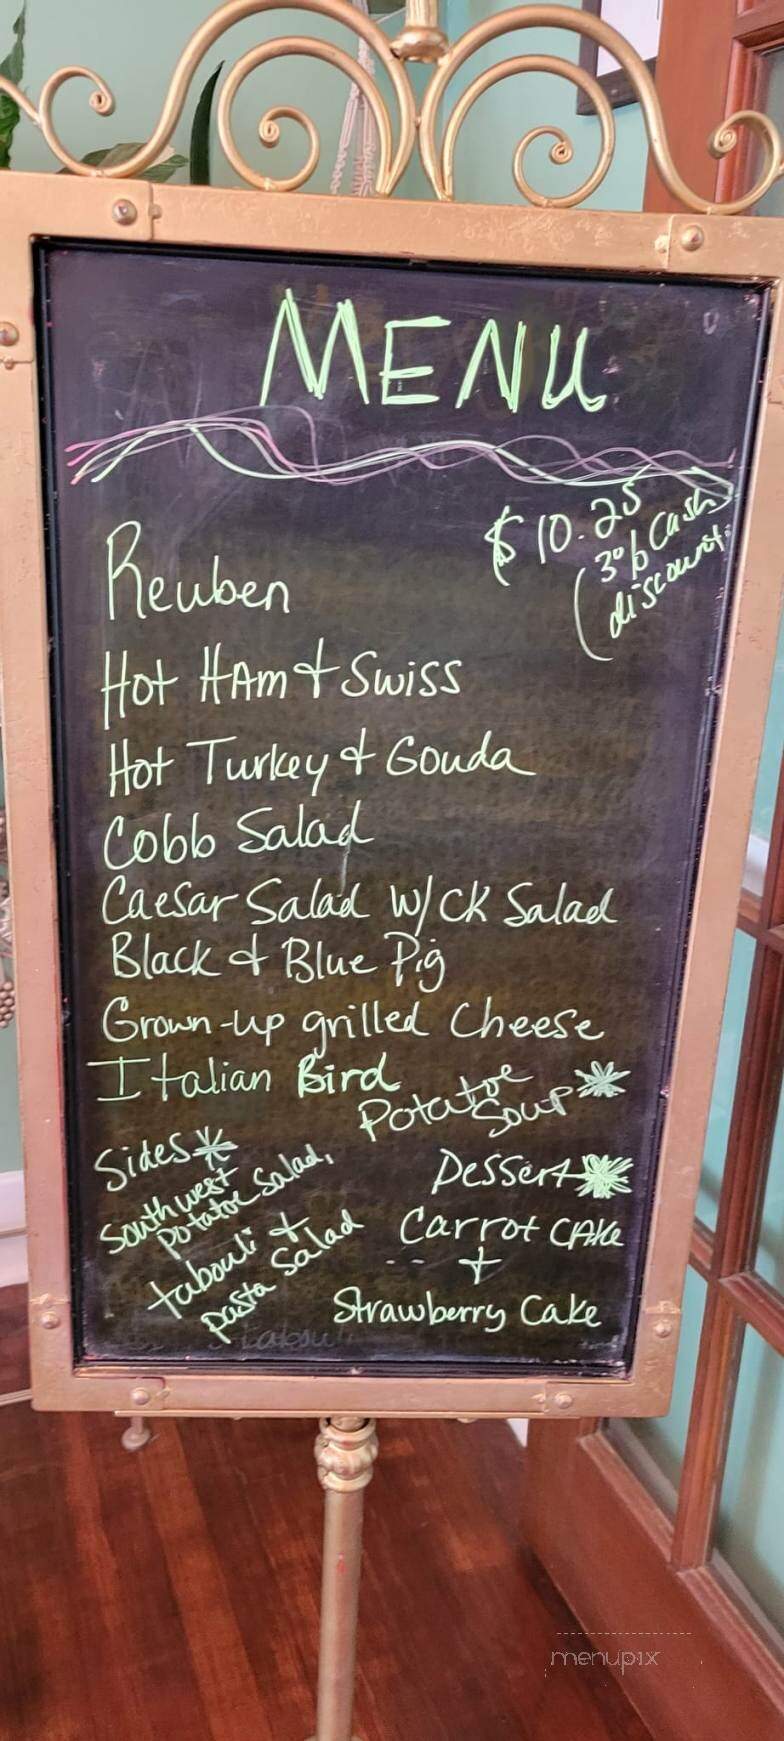 MENU
$10.25
(3% Cash
discount)
Reuben
Hot HAm & Swiss
Hot Turkey & Gouda
Cobb Salad
Caesar Salad W/CK Salad
Black & Blue Pig
Grown-up grilled Cheese
Italian Bird
Potatoe
Soup
Sides
Southwest
Potatoe Salad,
tabouli &
pasta Salad
Dessert
Carrot CAke
+
Strawberry Cake
tabouli
menupix